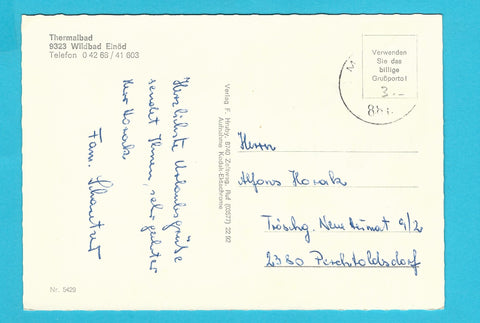 Thermalbad
9323 Wildbad Einöd
Telefon 0 42 68 / 41 603
Herzlichste Urlaubsgrüße
sendet Ihnen, sehr geehrter
Herr Horak
Fam.
Verlag F. Hruby, 8740 Zeltweg, Ruf (03577) 22 92
Aufnahme Kodak-Ektachrome
Verwenden
Sie das
billige
Grußporto!
3.-
Herrn
Alfons Horak
Neue Heimat 9/2
2380 Perchtoldsdorf
Nr. 5429